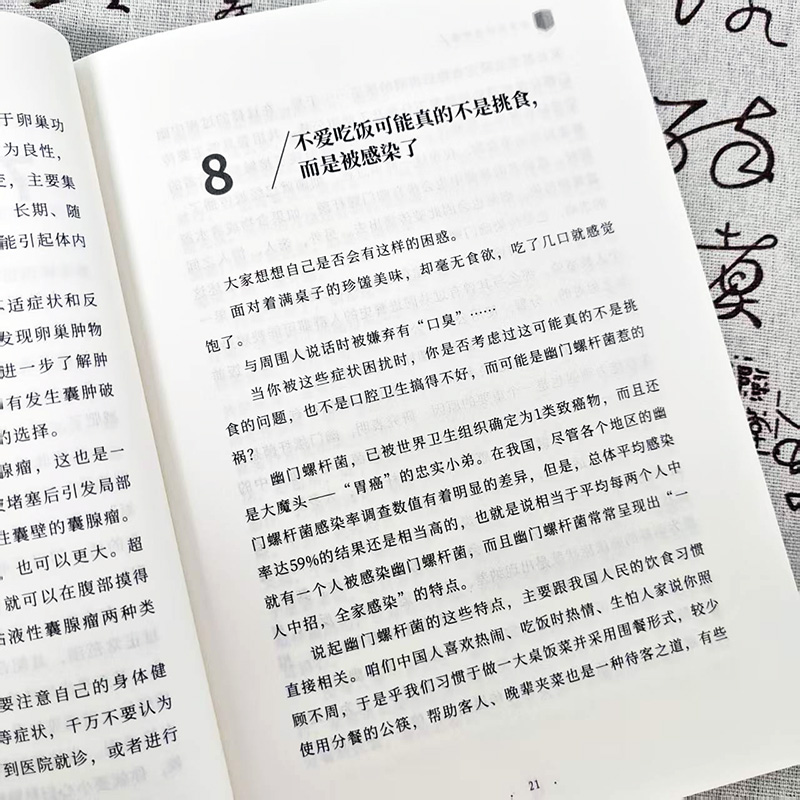 于卵巢功
为良性，
主要集
长期、随
能引起体内
不适症状和反
发现卵巢肿物
进一步了解肿
有发生囊肿破
的选择。
腺瘤，这也是一
堵塞后引发局部
性囊壁的囊腺瘤。
也可以更大。超
就可以在腹部摸得
粘液性囊腺瘤两种类
要注意自己的身体健
等症状，千万不要认为
到医院就诊，或者进行
8
不爱吃饭可能真的不是挑食，
而是被感染了
大家想想自己是否会有这样的困惑。
面对着满桌子的珍馐美味，却毫无食欲，吃了几口就感觉
饱了。
与周围人说话时被嫌弃有“口臭”……
当你被这些症状困扰时，你是否考虑过这可能真的不是挑
食的问题，也不是口腔卫生搞得不好，而可能是幽门螺杆菌惹的
祸？
幽门螺杆菌，已被世界卫生组织确定为1类致癌物，而且还
是大魔头——“胃癌”的忠实小弟。在我国，尽管各个地区的幽
门螺杆菌感染率调查数值有着明显的差异，但是，总体平均感染
率达59%的结果还是相当高的，也就是说相当于平均每两个人中
就有一个人被感染幽门螺杆菌，而且幽门螺杆菌常常呈现出“一
人中招，全家感染”的特点。
说起幽门螺杆菌的这些特点，主要跟我国人民的饮食习惯
直接相关。咱们中国人喜欢热闹、吃饭时热情、生怕人家说你照
顾不周，于是乎我们习惯于做一大桌饭菜并采用围餐形式，较少
使用分餐的公筷，帮助客人、晚辈夹菜也是一种待客之道，有些
21